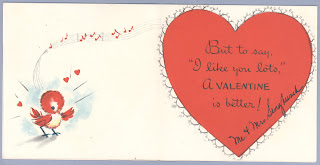 But to say,
"I like you lots,"
A VALENTINE
is better!
Mr & Mrs